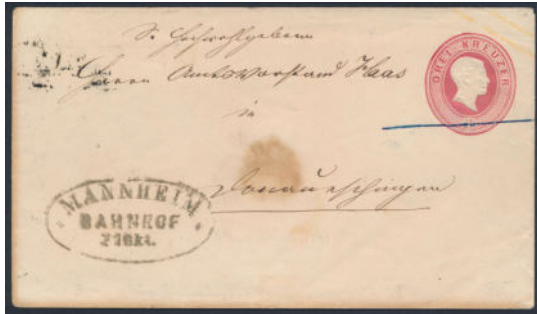 Sr Hochwohlgeboren
Herrn Amtsvorstand Haas
in
Donaueschingen
DREI KREUZER
MANNHEIM
BAHNHOF
Okt.